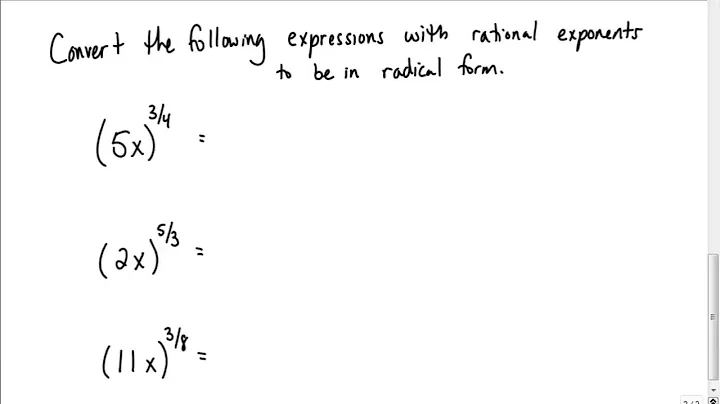 Convert the following expressions with rational exponents
to be in radical form.
(5x)^3/4 =
(2x)^5/3 =
(11x)^3/8 =